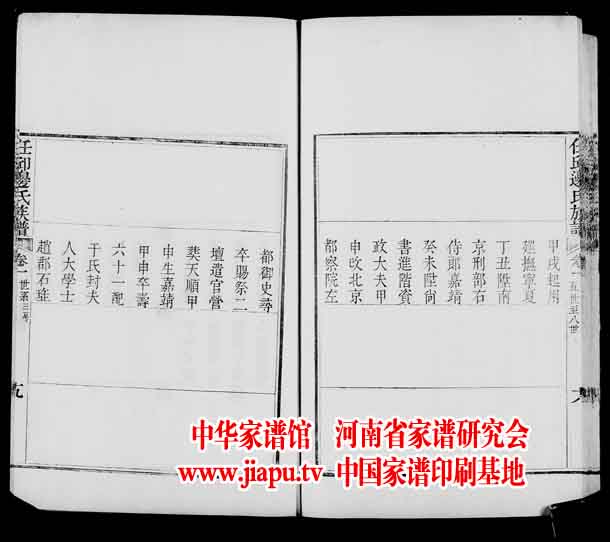 任邱邊氏族譜
卷一
五世至八世
甲戌起用
廵撫寧夏
丁丑陞南
京刑部右
侍郎嘉靖
癸未陞尚
書進階資
政大夫甲
申改北京
都察院左
都御史尋
卒賜祭二
壇遣官營
葬天順甲
申生嘉靖
甲申卒壽
六十一配
于氏封夫
人大學士
趙郡石珤
任邱邊氏族譜
卷一
九
中华家谱馆 河南省家谱研究会
www.jiapu.tv 中国家谱印刷基地